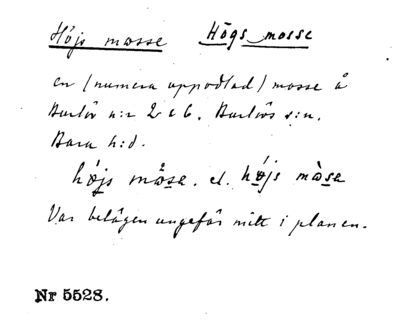 Höjs mosse Högs mosse
en (numera uppodlad) mosse å
Burlöv n:r 2 o 6. Burlövs s:n.
Bara h:d.
höjs måse. el. höjs mòse
Var belägen ungefär mitt i planen.
Nr 5528.